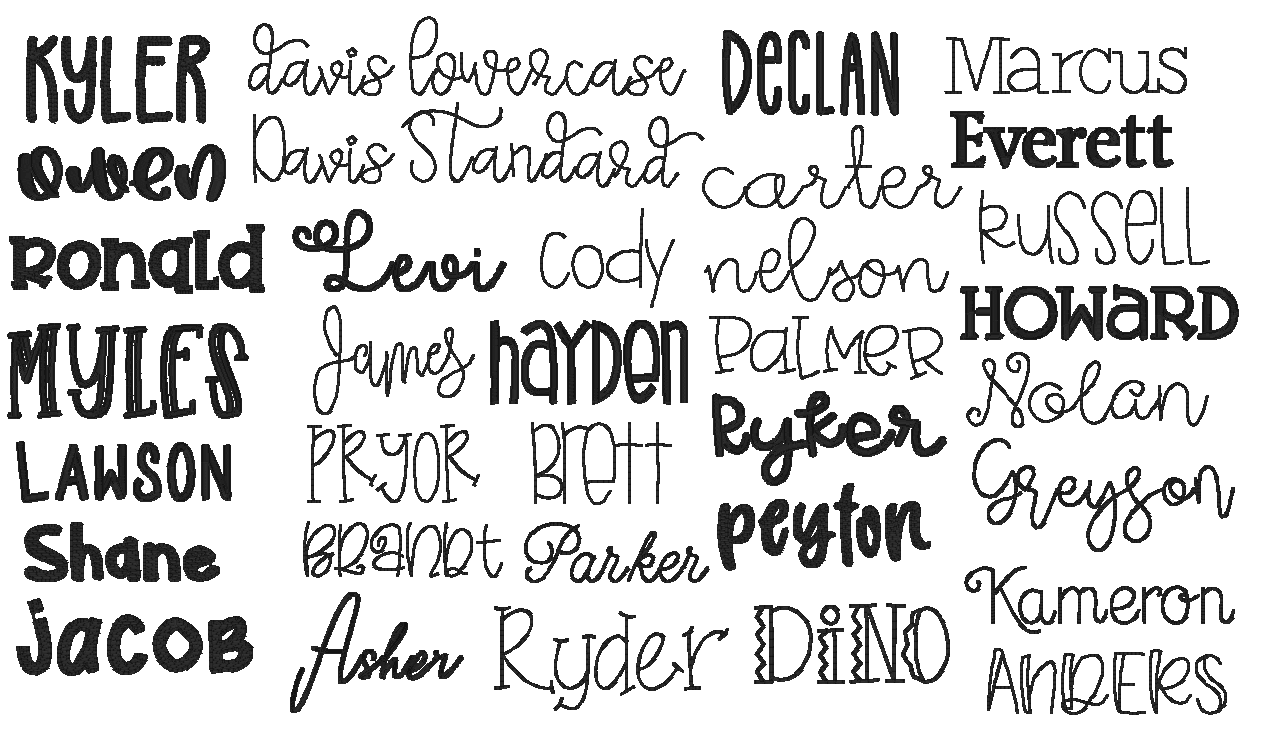 KYLER
owen
Ronald
MYLES
LAWSON
Shane
jacob
davis lowercase
Davis Standard
Levi
cody
James
hayden
PRYOR
Brett
BRANDt
Parker
Asher
Ryder
DeCLAN
carter
nelson
PaLMeR
Ryker
peyton
DiNO
Marcus
Everett
RUSSeLL
HOWaRD
Nolan
Greyson
Kameron
ANDERS